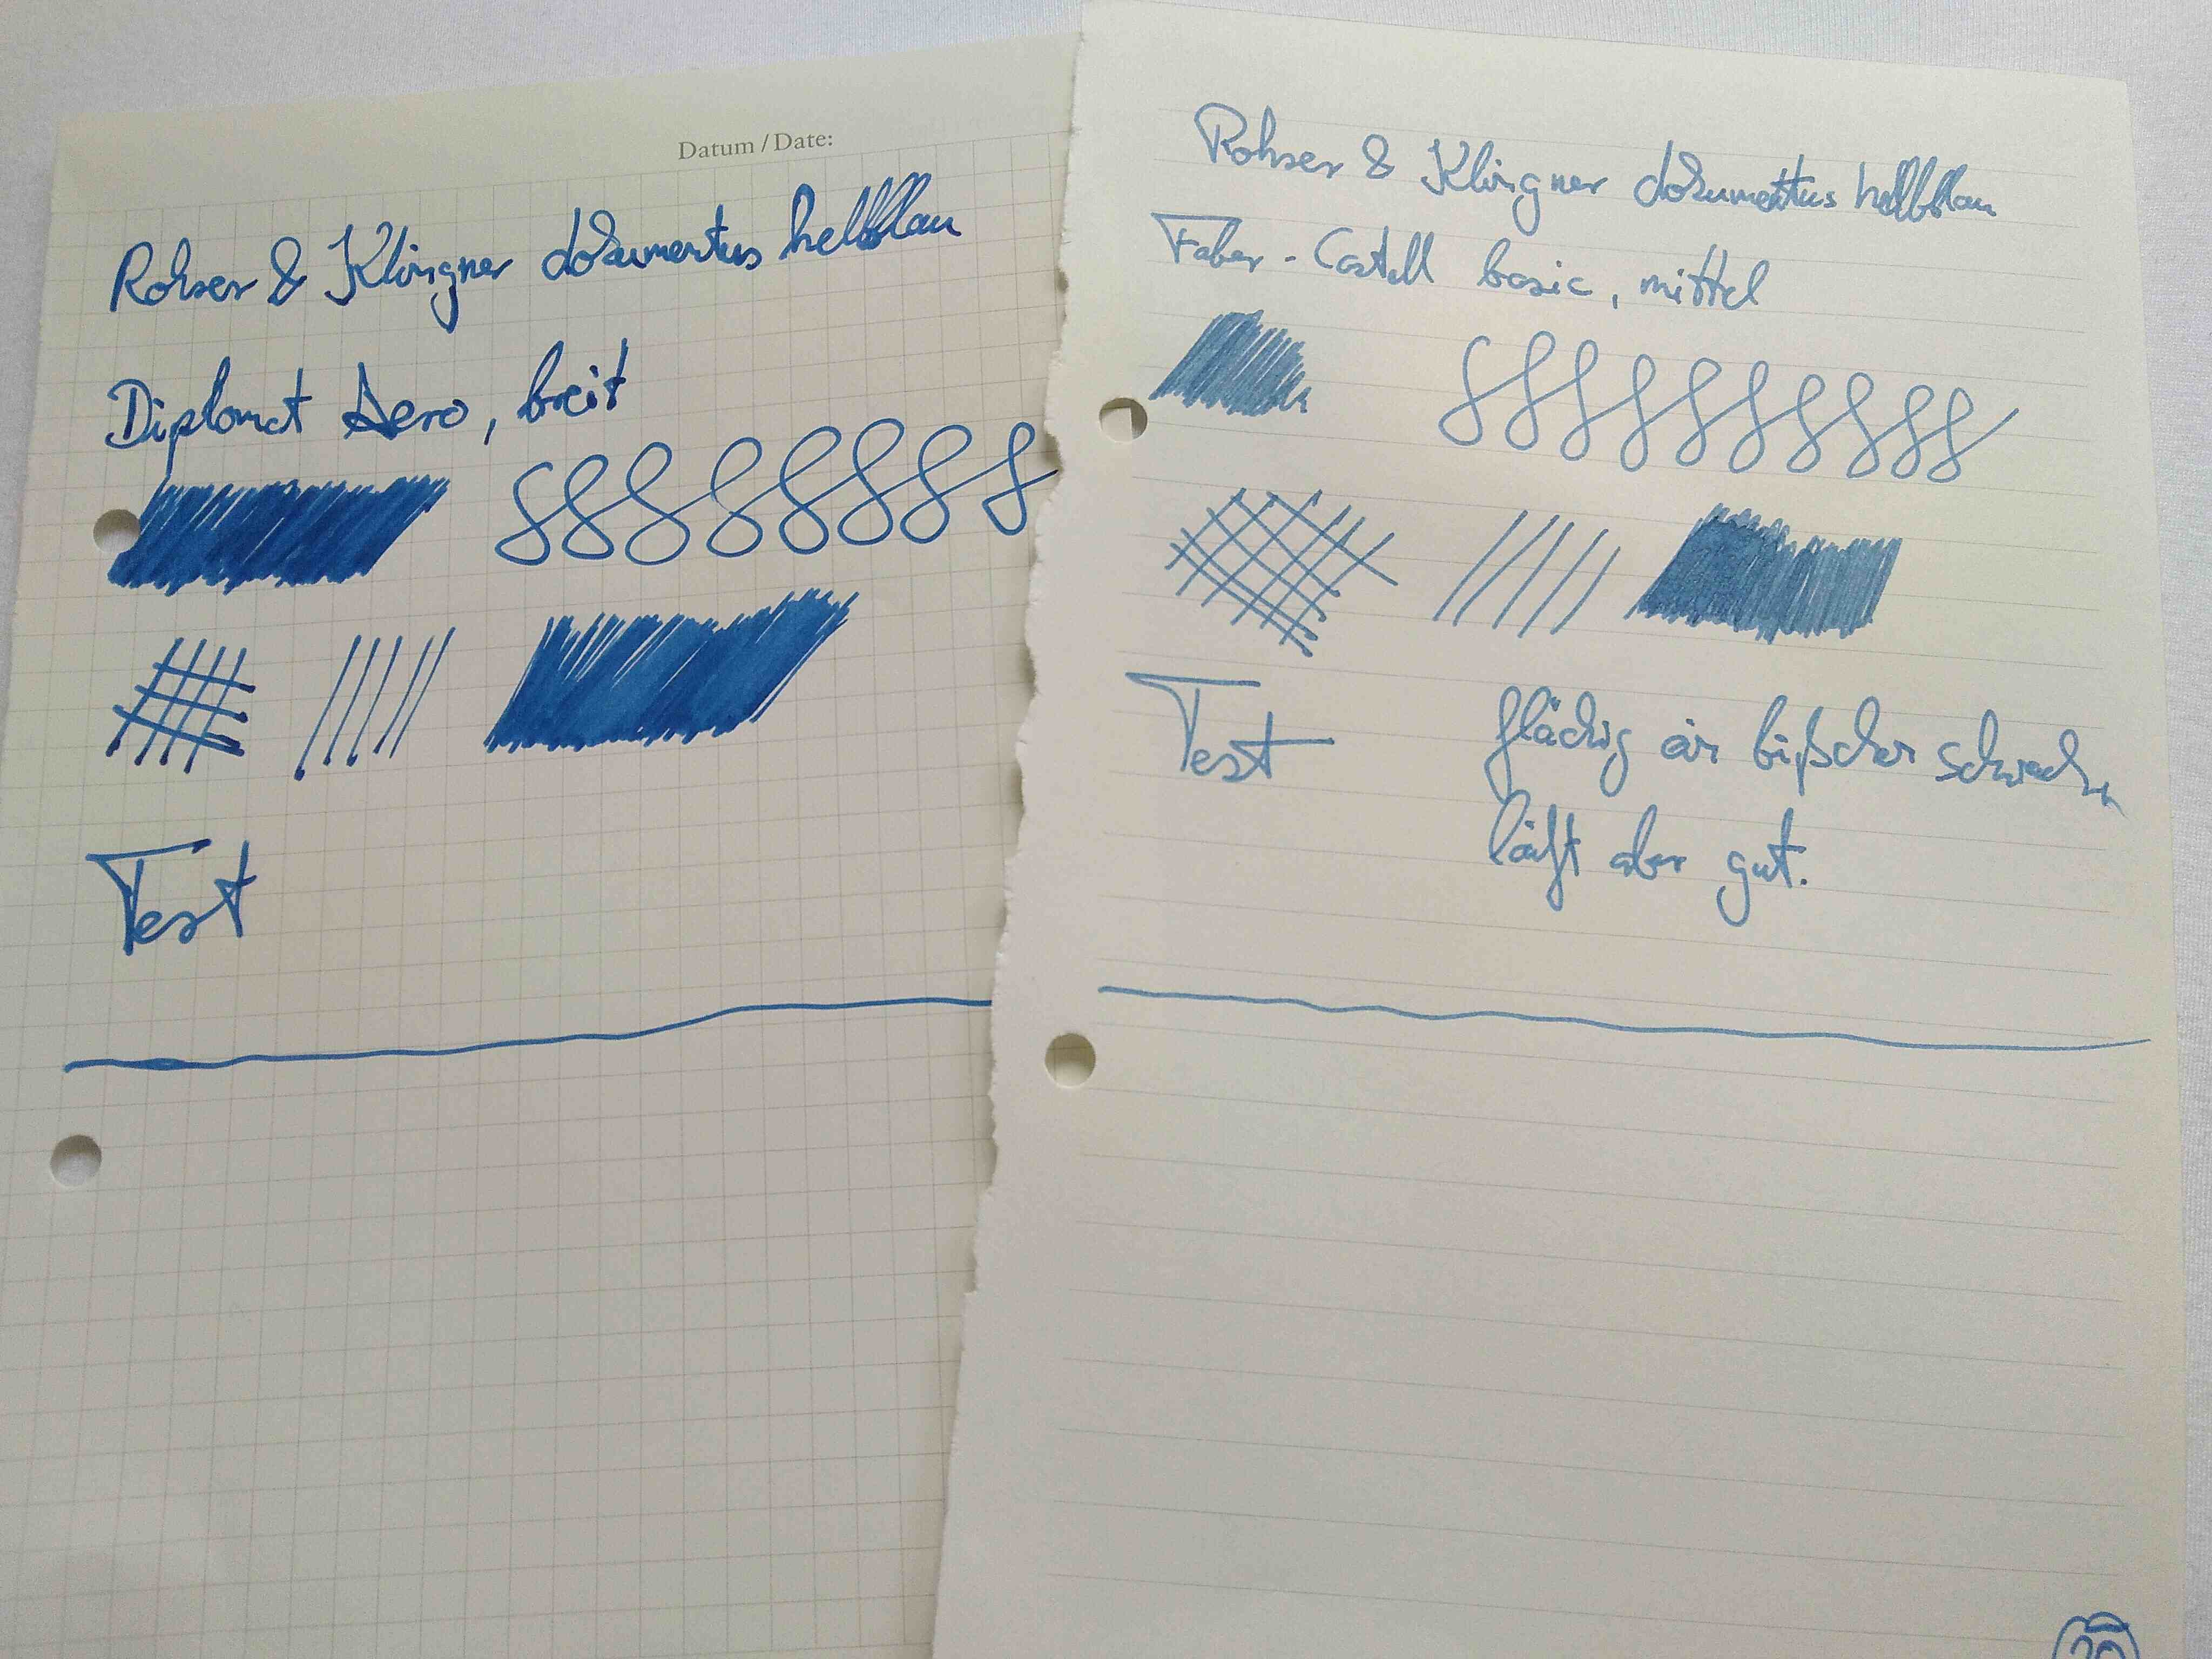 Datum / Date:
Rohrer & Klingner dokumentus hellblau
Diplomat Aero, breit
Test
Rohrer & Klingner dokumentus hellblau
Faber-Castell basic, mittel
Test
flächig ein bißchen schwach,
läuft aber gut.